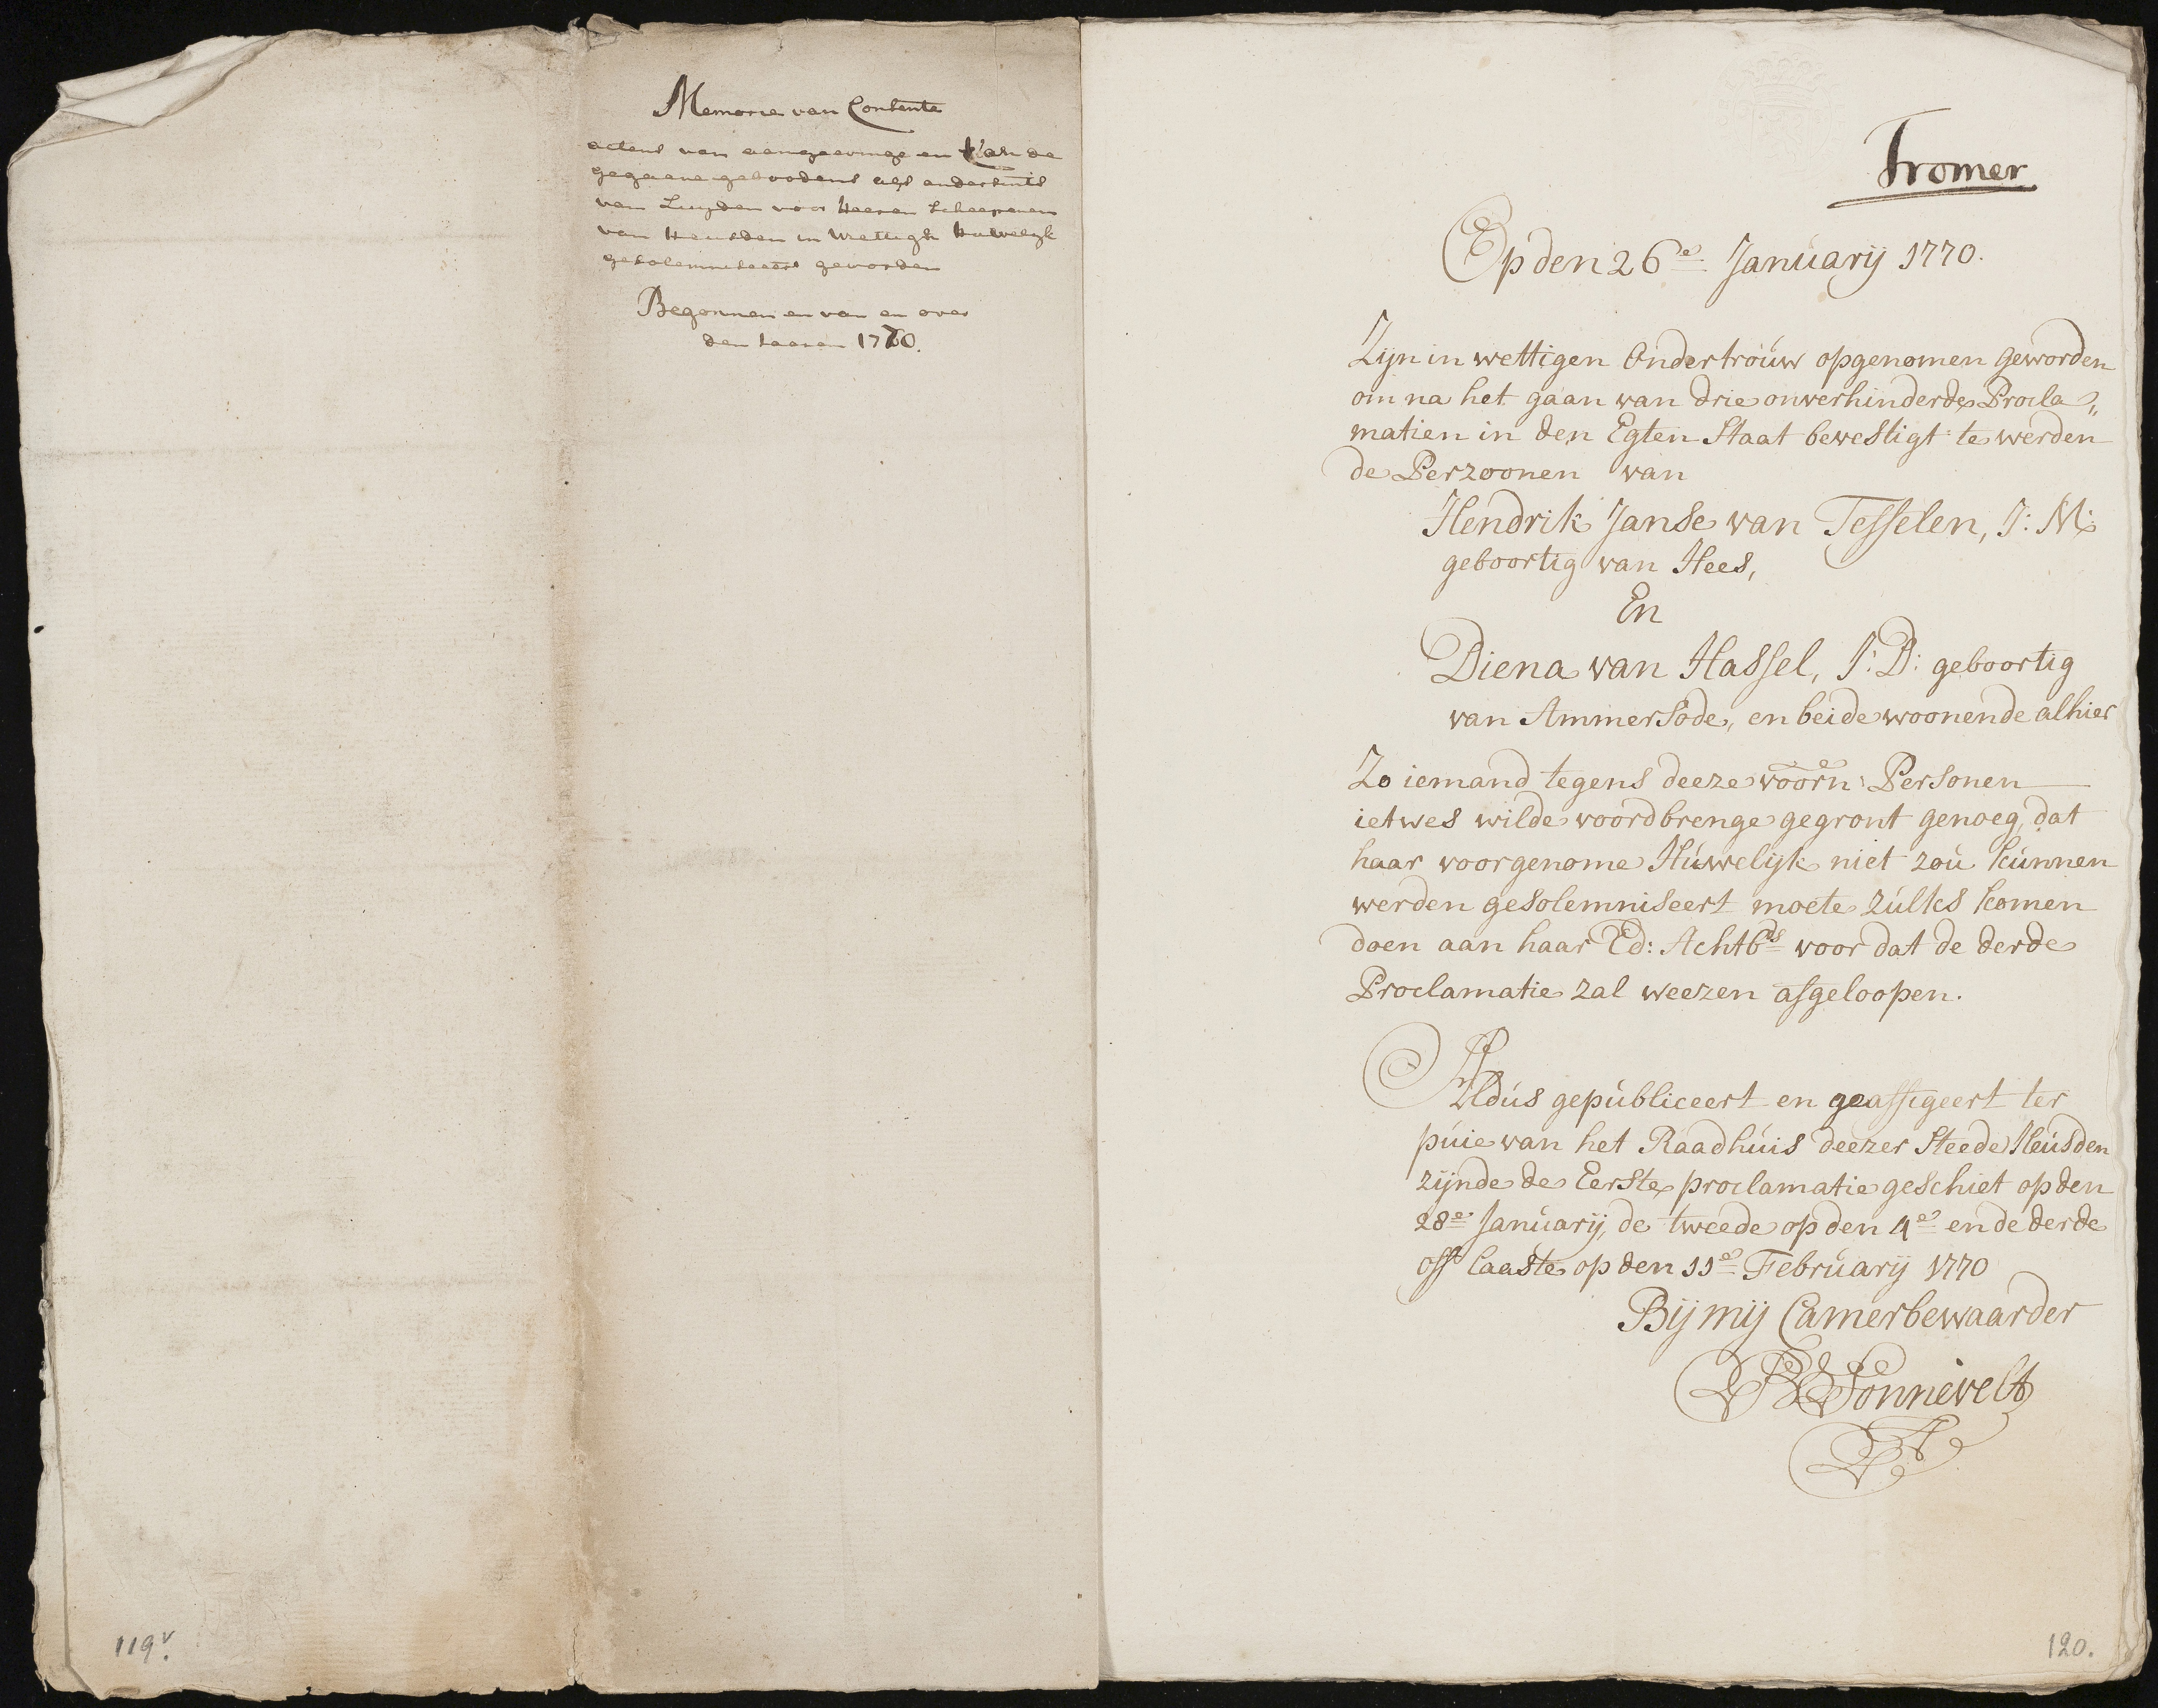 Memorie van Contente
actens van aangeevinge en van de
gegaene geboodens als andersints
van Luyden voor Heeren Scheepenen
van Heusden in Wettigh huwelyk
gesolemniseert geworden
Begonnen en van en over
den Jaeren 1770.
119v.
Fromer
Op den 26e Januarij 1770.
Zijn in wettigen Ondertrouw opgenomen geworden
om na het gaan van drie onverhinderde Procla„
matien in den Egten Staat bevestigt te werden
de Perzoonen van
Hendrik Janse van Tesselen, J: M:
geboortig van Hees,
En
Diena van Hassel, J: D: geboortig
van Ammersode, en beide woonende alhier
Zo iemand tegens deeze voorn: Personen
ietwes wilde voordbrenge gegront genoeg, dat
haar voorgenome Huwelijk niet zou kunnen
werden gesolemniseert moete zulks komen
doen aan haar Ed: Achtbds voor dat de derde
Proclamatie zal weezen afgeloopen.
Aldus gepubliceert en geaffigeert ter
puie van het Raadhuis deezer Steede Heusden
zijnde de Eerste proclamatie geschiet op den
28e Januarij, de tweede op den 4e en de derde
oft laaste op den 11e February 1770
Bij mij Camerbewaarder
Sonnevelt
120.